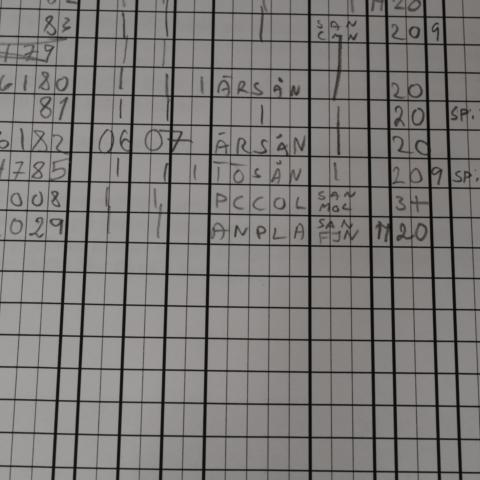 83 | | | SAN CNN 209
179
6180 | | 1 ÄRSÄN 20
81 | | | | 20 SP.
6182 06 07 ÄRSÄN | 20
1785 | | 1 TOSÄN | 209 SP.
008 | | PCCOL SAN MOL 3+
029 | | ANPLA SAN FJN 1120